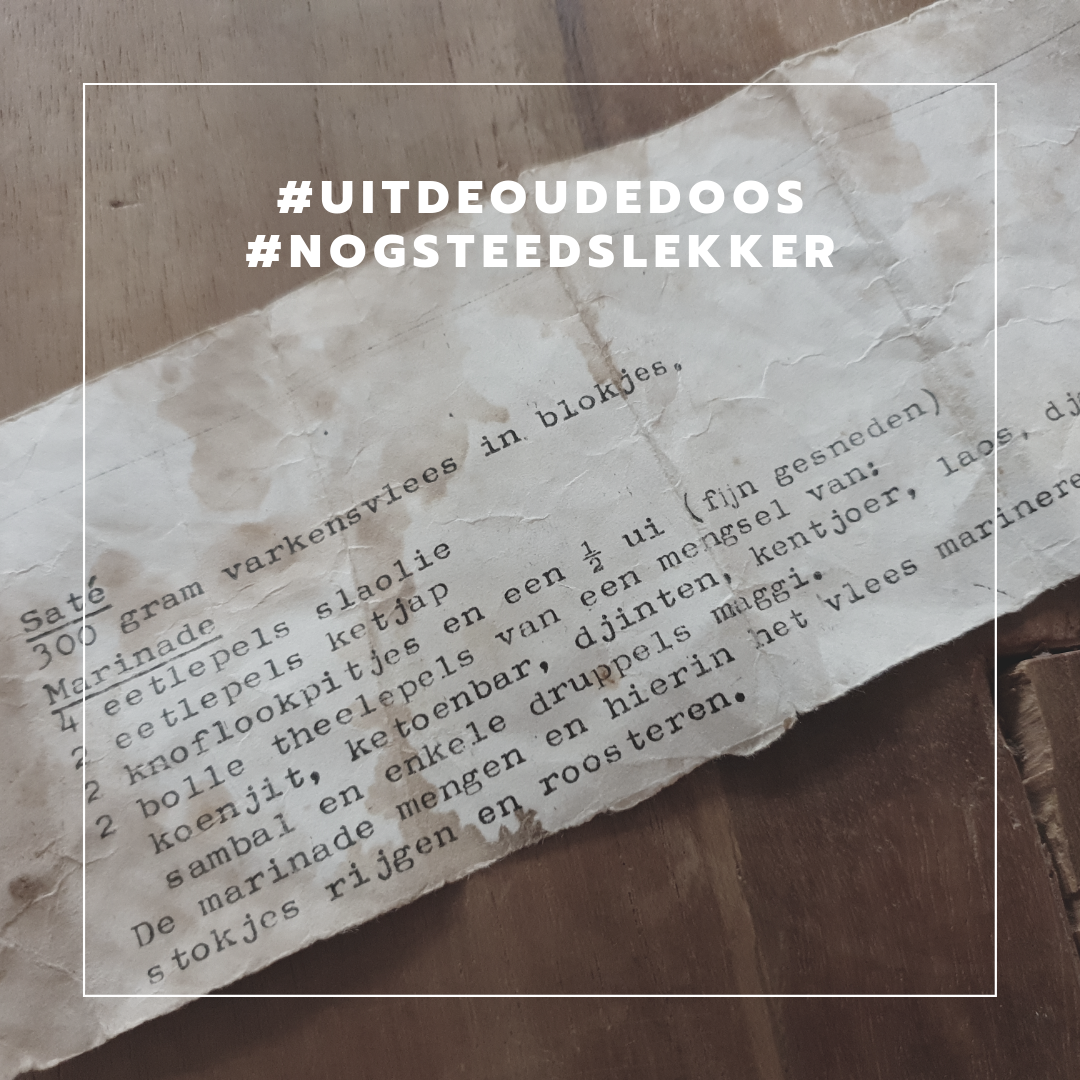 #UITDEOUDEDOOS
#NOGSTEEDSLEKKER
Saté
300 gram varkensvlees in blokjes,
Marinade
4 eetlepels slaolie
2 eetlepels ketjap
2 knoflookpitjes en een ½ ui (fijn gesneden)
2 bolle theelepels van een mengsel van:
koenjit, ketoenbar, djinten, kentjoer, laos,
sambal en enkele druppels maggi.
De marinade mengen en hierin het vlees
stokjes rijgen en roosteren.